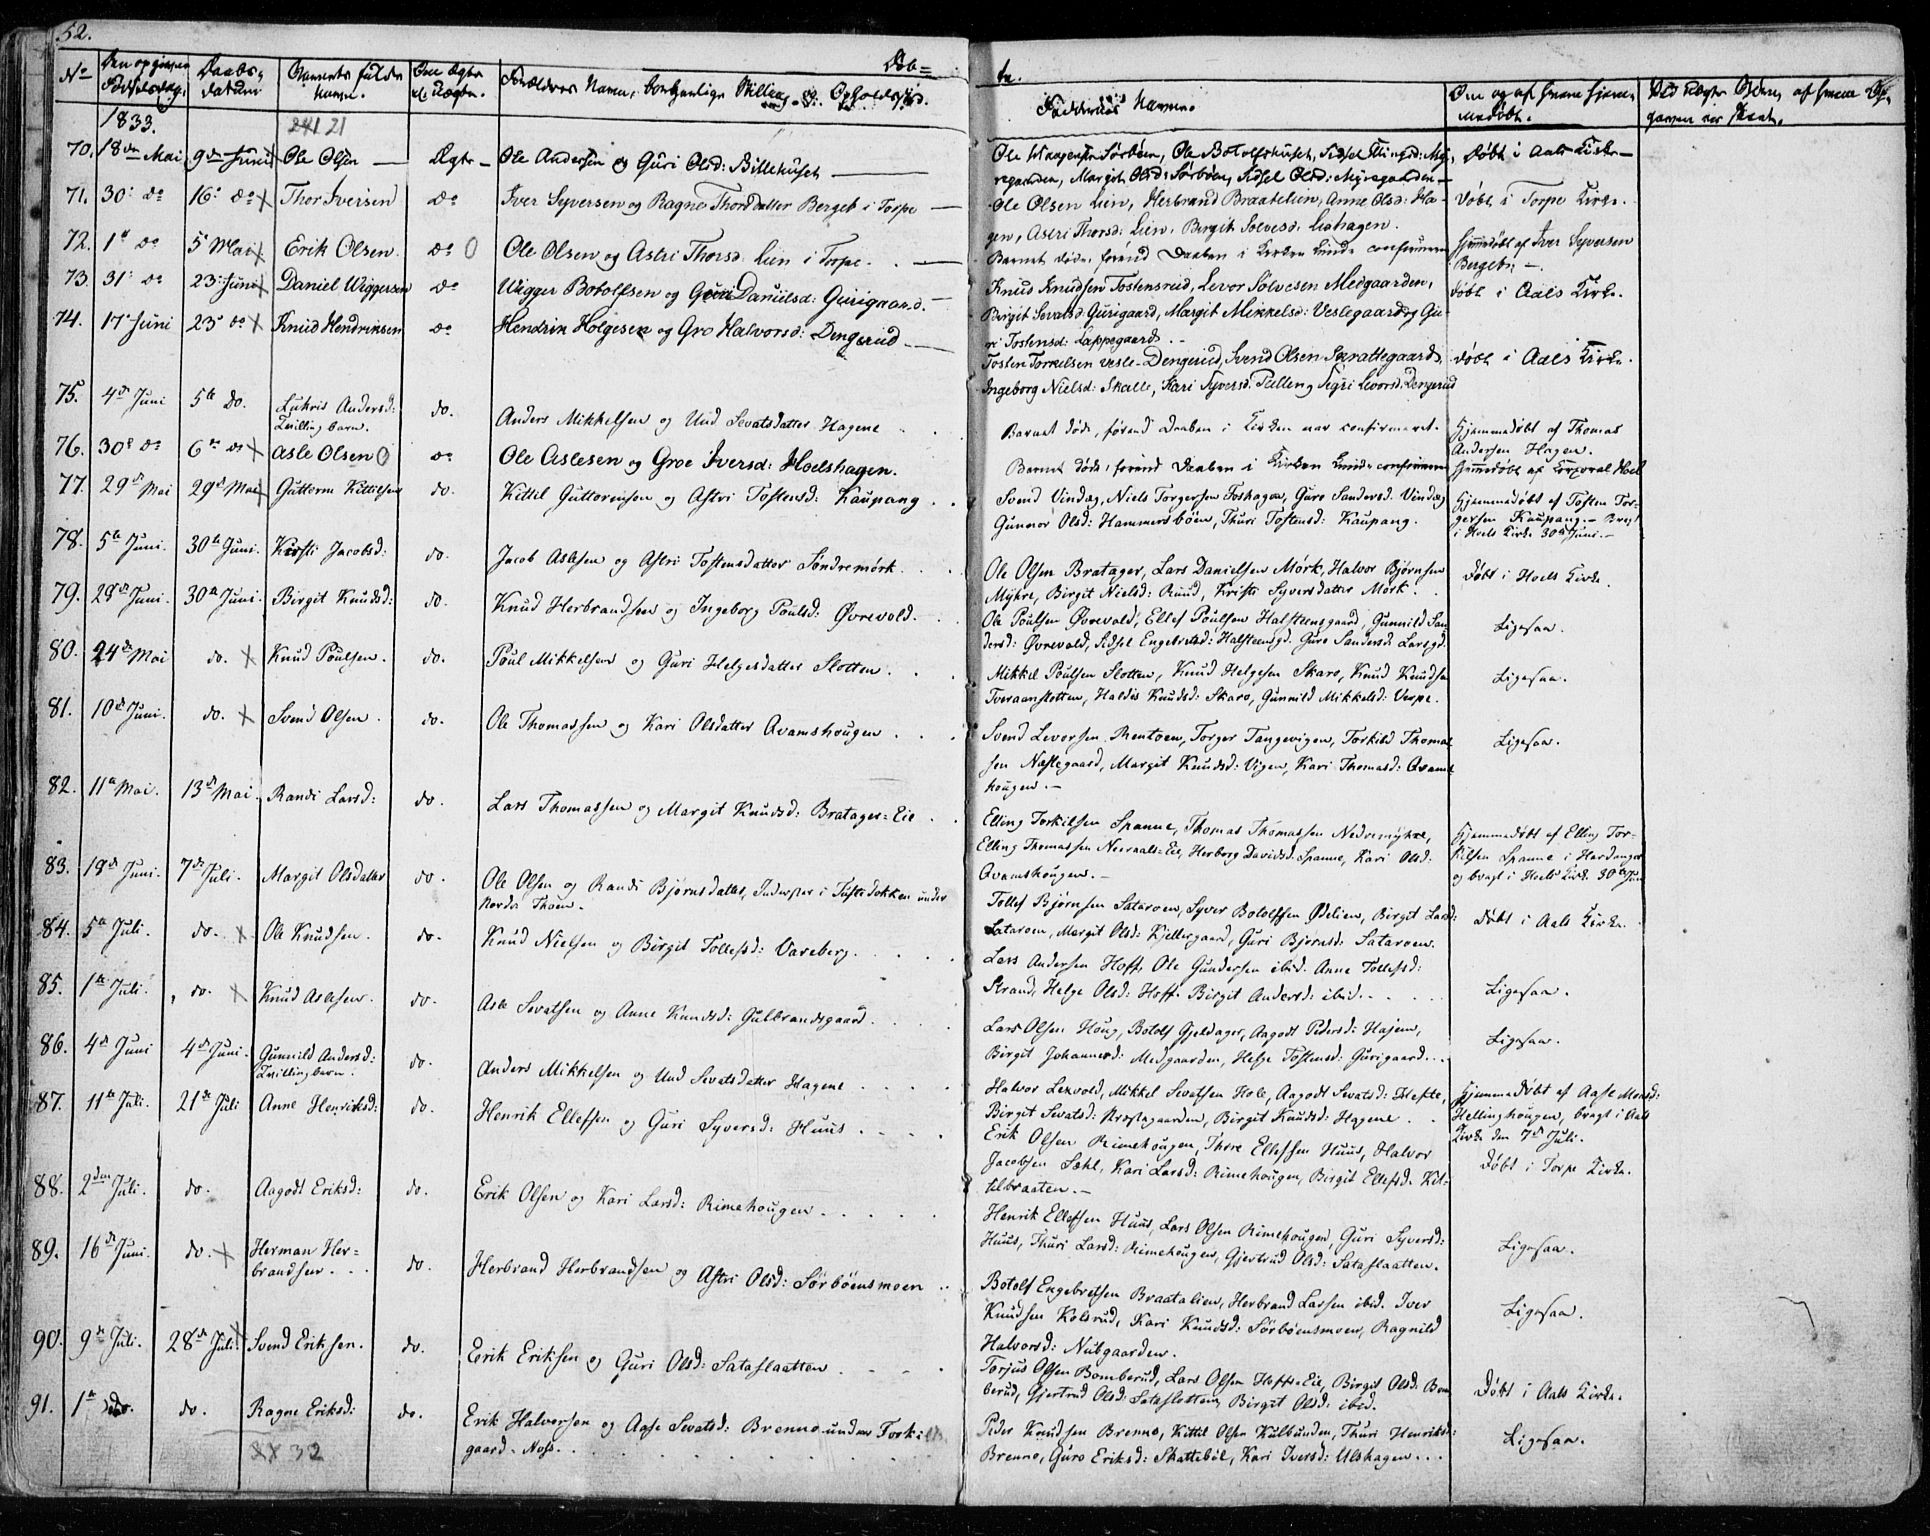 52.
Døb=
te.
No
Den opgivne Fødselsdag.
Daabs-datum
Barnets fulde Navn.
Om Ægte el. Uægte.
Forældres Navn, borgerlige Stilling og Opholdssted.
Faddernes Navne.
Om og af hvem hjemmedøbt.
1833.
70. 18de Mai 9de Juni Ole Olsen — Ægte — Ole Andersen og Guri Olsd: Billehuset —
Ole Sørbøen, Ole Botolfshuset, Sidsel
Margit Olsd: Sørbøen, Sidsel Olsd: Myregaarden — Døbt i Aals Kirke —
71. 30: do 16: do Thor Iversen do Iver Syversen og Ragne Thorsdatter Bergeb i Torpe —
Ole Olsen Lien, Herbrand Braatelien, Anne Olsd: Ha-
gen, Astri Thorsd: Lien, Birgit Solvesd: Liahagen. Døbt i Torpe Kirke.
72. 1d do 5 Mai Erik Olsen do Ole Olsen og Astri Thorsd: Lien i Torpe. —
Barnet døde, førend Daaben i Kirken kunde confirmeres Hjemmedøbt af Iver Syversen
Bergeb. —
73. 31: do 23: Juni Daniel Wiggersen do Wigger Botolfsen og Guri Danielsd: Gurigaard. —
Knud Knudsen Tostensrud, Levor Solvesen Medgaarden,
Birgit Sevatsd: Gurigaard, Margit Mikkelsd: Veslegaard og Gu-
ri Tostensd: Lappegaard. — Døbt i Aals Kirke.
74. 17 Juni 23 do Knud Hendriksen do Hendrik Holgesen og Gro Halvorsd: Dengerud —
Tosten Torkelsen vesle-Dengerud, Svend Olsen Skrattegaard,
Ingeborg Nielsd: Skalle, Kari Syversd: Pallen og Sigri Levorsd: Dengerud Døbt i Aals Kirke.
75. 4de Juni 5te do. Andersd: do. Anders Mikkelsen og Und Sevatsdatter Hagene
Tvillingbarn.
Barnet døde, førend Daaben i Kirken var confirmeret. Hjemmedøbt af Thomas
Andersen Hagen.
76. 30: do 6te do Asle Olsen do Ole Aslesen og Groe Iversd: Hoelshagen.
Barnet døde, førend Daaben i Kirken kunde confirmeres Hjemmedøbt af Corporal Hoel
77. 29de Mai 29de Mai Guttorm Kittilsen do. Kittil Guttormsen og Astri Tostensd: Kaupang
Svend Vindeg, Niels Torgersen Foshagen, Guro Sandersd: Vindeg
Gunnor Olsd: Hammersbøen, Thuri Tostensd: Kaupang. Hjemmedøbt af Tosten Tor-
gersen Kaupang. — Bragt
i Hoels Kirke 30te Juni. —
78. 5te Juni. 30te Juni. Kirsti Jacobsd: do. Jacob Aslesen og Astri Tostensdatter Søndremørk
Ole Olsen Bratager, Lars Danielsen Mørk, Halvor Bjørnsen
Myhre, Birgit Nielsd: Ruud, Kristi Syversdatter Mørk. Døbt i Hoels Kirke.
79. 28de Juni. 30te Juni. Birgit Knudsd: do. Knud Herbrandsen og Ingeborg Poulsd: Øvrevold.
Ole Poulsen Øvrevold, Ellef Poulsen Halsteensgaard, Gunnild San-
dersd: Øvrevold, Sidsel Engebretsd: Halsteensgd. Guro Sandersd: Larsgd. Ligesaa.
80. 24de Mai do. Knud Poulsen. do. Poul Mikkelsen og Guri Helgesdatter Slotten.
Mikkel Poulsen Slotten, Knud Helgesen Skaro, Knud Knudsen
Tveraanslotten, Haldis Knudsd: Skaro, Gunnild Mikkelsd: Verpe. Ligesaa.
81. 10de Juni. do. Svend Olsen. do. Ole Thomassen og Kari Olsdatter Qvamshougen
Svend Leversen Rentoen, Torger Tangevigen, Torkild Thomas-
sen Nestegaard, Margit Knudsd: Vigen, Kari Thomasd: Qvams-
hougen. — Ligesaa.
82. 11te Mai. 13de Mai. Randi Larsd: do. Lars Thomassen og Margit Knudsd: Bratager=Eie
Elling Torkilsen Spanne, Thomas Thomassen Nedremyhre,
Elling Thomassen Neeraals=Eie, Herborg Davidsd: Spanne, Kari Olsd:
Qvamshougen. — Hjemmedøbt af Elling Tor-
kilsen Spanne i Hardanger
og bragt i Hoels Kirke 30te Juni
83. 18de Juni. 7de Juli. Margit Olsdatter do. Ole Olsen og Randi Bjørnsdatter, Inderster i Tuftedokken under
Nordre Thoen.
Tollef Bjørnsen Sataroen, Syver Botolfsen Ødelien, Birgit Larsd:
Sataroen, Margit Olsd: Kjellergaard, Guri Bjørnsd: Sataroen. Døbt i Aals Kirke.
84. 5te Juli. do. Ole Knudsen. do. Knud Nielsen og Birgit Tollefsd: Vareberg.
Lars Andersen Hoff, Ole Gundersen ibid. Anne Tollefsd:
Strand, Helge Olsd: Hoff. Birgit Andersd: ibid. Ligesaa.
85. 1te Juli. do. Knud Aslesen. do. Asle Sevatsen og Anne Knudsd: Gulbrandsgaard.
Lars Olsen Houg, Botolf Gjeldager, Aagodt Pedersd: Hajem,
Birgit Johannesd: Medgaarden, Helge Tostensd: Gurigaard. Ligesaa.
86. 4de Juni 4de Juni. Gunnild Andersd: do. Anders Mikkelsen og Und Sevatsdatter Hagene
Tvillingbarn.
Halvor Lexvold, Mikkel Sevatsen Hole, Aagodt Sevatsd: Hefte,
Birgit Sevatsd: Nrestegaarden, Birgit Knudsd: Hagene. Hjemmedøbt af Aase Monsd:
Hellinghougen, bragt i Aals
Kirke den 7de Juli.
87. 11te Juli. 21de Juli Anne Henriksd: do. Henrik Ellefsen og Guri Syversd: Huus
Erik Olsen Rimehougen, Thore Ellefsen Huus, Halvor
Jacobsen Sæhl, Kari Larsd: Rimehougen, Birgit Ellefsd. Kit-
tilbraaten. — Døbt i Torpe Kirke.
88. 2den Juli. do. Aagodt Eriksd: do. Erik Olsen og Kari Larsd: Rimehougen
Henrik Ellefsen Huus, Lars Olsen Rimehougen, Guri Syversd:
Huus, Thuri Larsd: Rimehougen, Gjertrud Olsd: Sataslaatten. Ligesaa.
89. 16de Juni. do. Herman Her-
brandsen do. Herbrand Herbrandsen og Astri Olsd: Sørbøensmoen
Botolf Engebretsen Braatalien, Herbrand Larsen ibid. Iver
Knudsen Kolsrud, Kari Knudsd: Sørbøensmoen, Ragnild
Halvorsd: Nubgaarden. Ligesaa.
90. 9de Juli. 28de Juli. Svend Eriksen. do. Erik Eriksen og Guri Olsd: Sataslaatten
Torjus Olsen Bomberud, Lars Olsen Hoffs-Eie, Birgit Olsd: Bom-
berud, Gjertrud Olsd: Sataslotten, Birgit Olsd: ibid. Døbt i Aals Kirke.
91. 1te do. do. Ragne Eriksd: do. Erik Halvorsen og Aase Sevatsd: Brenno under Torkils
gaard-Noss.
Peder Knudsen Brenno, Kittil Olsen Kulbunden, Thuri Henriksd:
Brenno, Guro Eriksd: Skattebøl, Kari Iversd: Ulshagen. Ligesaa.
32